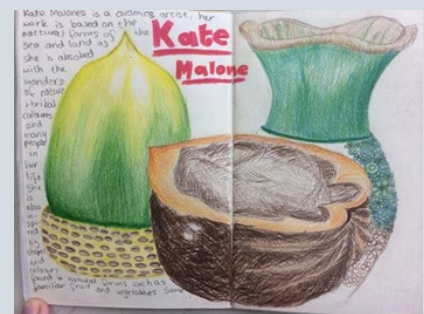 Kate Malones is a ceramics artist, her
work is based on the
natural forms of the
sea and land as
she is absobed
with the
wonders
of nature
tribal
colours
and
many
people
in
her
life
She
is
also
in-
spi
red
by
shapes
and
colours
found in natural forms such as
familiar fruit and vegetables. Some
Kate
Malone